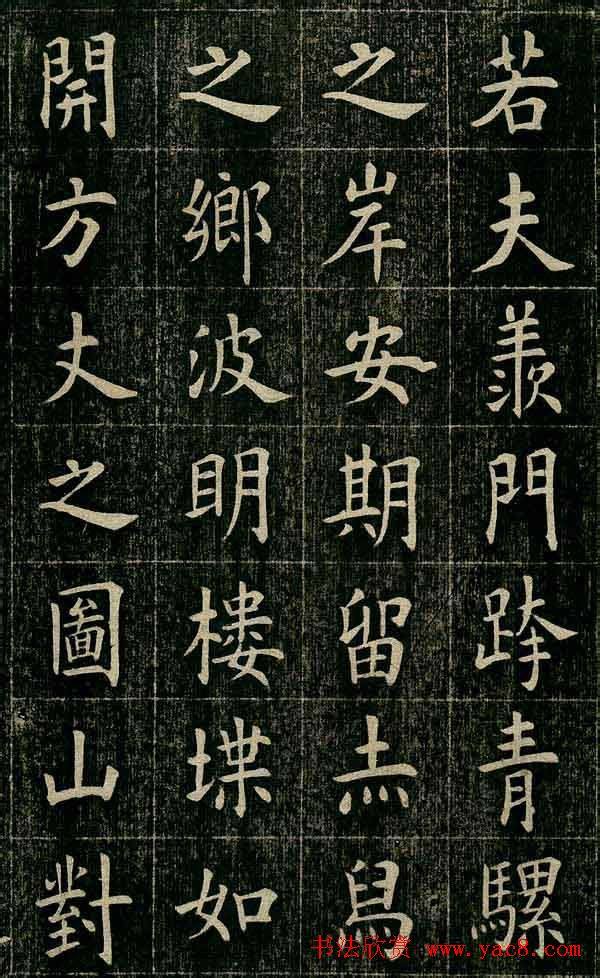 若夫羨門跨青騾
之岸安期留赤舄
之鄉波眀樓堞如
開方丈之圖山對
书法欣赏 www.yac8.com